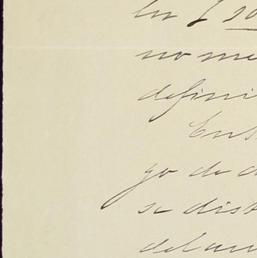 en $ 20
no me
defini
Ent
go de d
se dist
del an